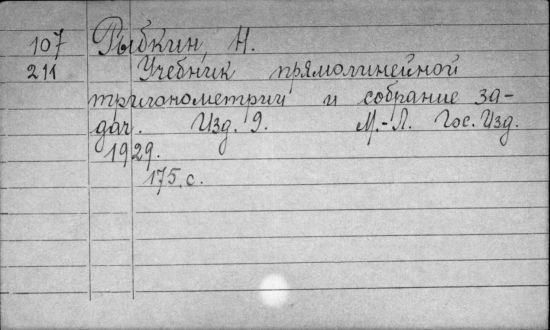 107 Рыбкин, Н.
211 Учебник прямолинейной
тригонометрии и собрание за-
дач. Изд. 9. М.-Л. Гос. Изд.
1929.
175. с.